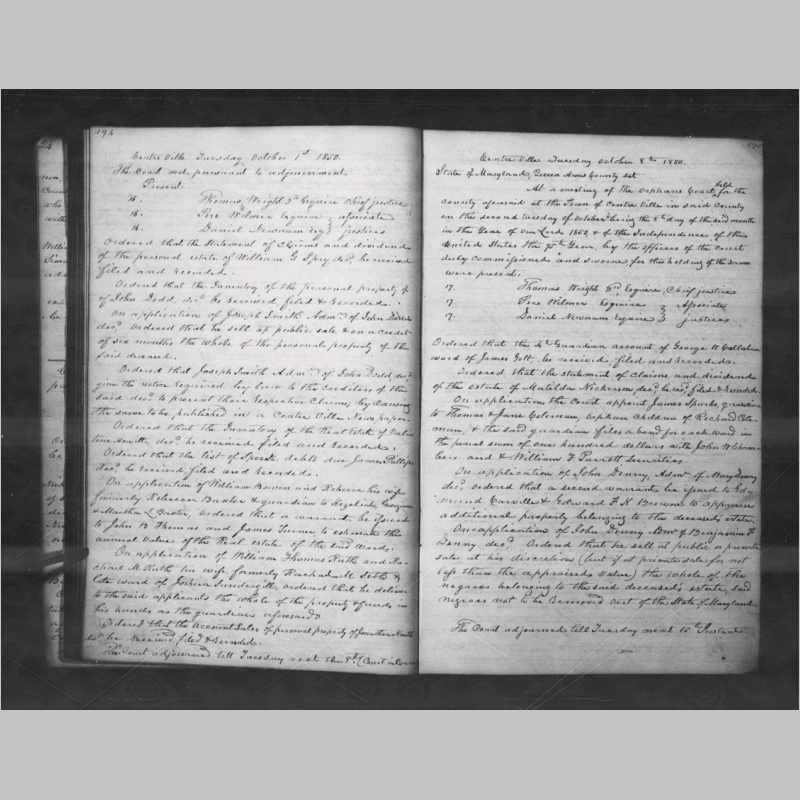 194
Centre Ville Tuesday October 1st 1850.
The Court met pursuant to adjournment.
Present.
16. Thomas Wright 3d Esquire Chief justice
16. Pere Wilmer Esquire } associate
16. Daniel Newnam esq } justices
Ordered that the Statement of Claims and dividends
of the personal estate of William G Spry decd. be received
filed and recorded.
Ordered that the Inventory of the personal property
of John Dodd, decd be received, filed & recorded.
On application of Joseph Smith Admr. of John Dodd
decd Ordered that he sell at public sale & on a credit
of six months the whole of the personal property of the
said deceased.
Ordered that Joseph Smith Admr. of John Dodd, decd
give the notice required by law to the creditors of the
said decd to present their respective Claims, by causing
the same to be published in a Centre Ville Newspaper.
Ordered that the Inventory of the Real Estate of
Smith, decd be received filed and recorded.
Ordered that the list of Sperate debts due James Phillips
decd be received filed and recorded.
On application of William Bowen and Rebecca his wife
formerly Rebecca Baxter & guardian to
& Martha Baxter, ordered that a warrant be issued
to John B Thomas and James Turner to estimate the
annual value of the Real estate of the said Wards.
On application of William Thomas Ruth and Ra-
chael M Ruth his wife formerly Rachael M
late ward of Joshua ordered that he deliver
to the said applicants the whole of the property & funds in
his hands as the guardian aforesaid
Ordered that the Account Sales of personal property of Jonathan
decd be received, filed & recorded.
The Court adjourned till Tuesday next the 8th (Court
Centre Ville Tuesday October 8th 1850.
State of Maryland, Queen Anns County sct
At a meeting of the Orphans Court held for the
County aforesaid at the Town of Centre Ville in said County
on the second Tuesday of October being the 8th day of the said month
in the Year of our Lord 1850, & of the Independence of the
United States the 75th Year, by the officers of the Court
duly commissioned and sworn for the holding of the same
were present.
17. Thomas Wright 3rd Esquire Chief justice
17. Pere Wilmer Esquire } Associate
17. Daniel Newnam Esquire } justices
Ordered that the 4th Guardian account of George W Callahan
ward of James be received filed and recorded.
Ordered that the statement of Claims and dividends
of the estate of Matilda Nickerson decd be recd filed & recorded.
On application the Court appoint James Sparks, guardian
to Thomas & Jane Coleman, orphan children of Richard Cole-
man, & the said guardian files a bond for each ward in
the penal sum of one hundred dollars with John W
and & William F Parrott Securities.
On application of John Denny, Admr. of Mary Denny
decd ordered that a second warrant be issued to Ed-
mund Carville & Edward F. H. Browne to appraise
additional property belonging to the deceased's estate.
On application of John Denny Admr of Benjamin F
Denny decd Ordered that he sell at public or private
sale at his discretion (but if at private sale for not
less than the appraised value) the whole of the
negroes belonging to the said deceased's estate, said
negroes not to be removed out of the State of Maryland.
The Court adjourned till Tuesday next 15th Instant